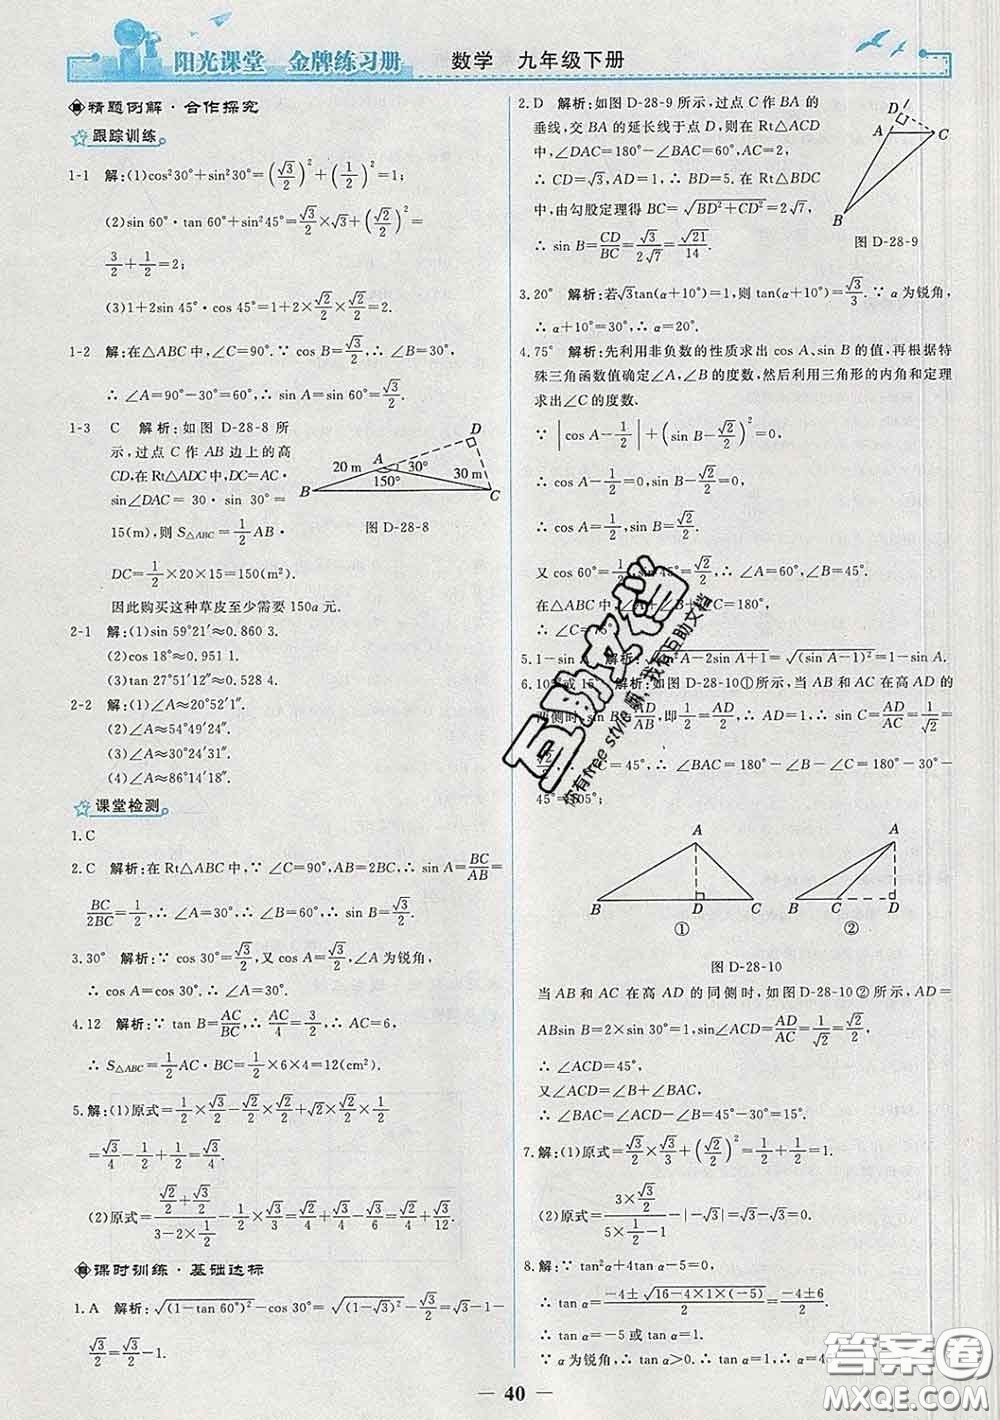 阳光课堂 金牌练习册 数学 九年级下册
精题例解·合作探究
跟踪训练
1-1 解:(1)cos²30°+sin²30°=(√3/2)²+(1/2)²=1;
(2)sin 60°·tan 60°+sin²45°=√3/2×√3+(√2/2)²=
3/2+1/2=2;
(3)1+2sin 45°·cos 45°=1+2×√2/2×√2/2=2.
1-2 解:在△ABC中,∠C=90°.∵ cos B=√3/2,∴ ∠B=30°,
∴ ∠A=90°-30°=60°,∴ sin A=√3/2.
1-3 C 解析:如图 D-28-8 所
示,过点 C 作 AB 边上的高
CD,在 Rt△ADC 中,DC=AC·
sin∠DAC = 30 · sin 30° =
15(m),则 S△ABC=1/2 AB·
DC=1/2×20×15=150(m²).
因此购买这种草皮至少需要 150a 元.
D
A
20 m
30°
150°
30 m
B
C
图 D-28-8
2-1 解:(1)sin 59°21′≈0.860 3.
(2)cos 18°≈0.951 1.
(3)tan 27°51′12″≈0.528 4.
2-2 解:(1)∠A≈20°52′1″.
(2)∠A≈54°49′24″.
(3)∠A≈30°24′31″.
(4)∠A≈86°14′18″.
课堂检测
1.C
2.C 解析:在 Rt△ABC 中,∵ ∠C=90°,AB=2BC,∴ sin A=BC/AB=
BC/2BC=1/2,∴ ∠A=30°,∴ ∠B=60°,∴ sin B=√3/2.
3.30° 解析:∵ cos 30°=√3/2,又 cos A=√3/2,∠A 为锐角,
∴ cos A=cos 30°,∴ ∠A=30°.
4.12 解析:∵ tan B=AC/BC,∴ AC/4=3/2,∴ AC=6,
∴ S△ABC=1/2 AC·BC=1/2×6×4=12(cm²).
5.解:(1)原式=1/2×√3/2-√2/2×√2/2+√2×√2/2
=√3/4-1/2+1=√3/4+1/2.
(2)原式=(√2/2+√3/2)/(3-2×1/2)-1/2×√3/3=√2/4+√3/4-√3/6=√2/4+√3/12.
课时训练·基础达标
1.A 解析:√(1-tan 60°)²-cos 30°=√(1-√3)²-√3/2=√3-1-
√3/2=√3/2-1.
2.D 解析:如图 D-28-9 所示,过点 C 作 BA 的
垂线,交 BA 的延长线于点 D,则在 Rt△ACD
中,∠DAC=180°-∠BAC=60°,AC=2,
∴ CD=√3,AD=1,∴ BD=5. 在 Rt△BDC
中,由勾股定理得 BC=√BD²+CD²=2√7,
∴ sin B=CD/BC=√3/2√7=√21/14.
D
A
C
B
图 D-28-9
3.20° 解析:若√3tan(α+10°)=1,则 tan(α+10°)=√3/3.∵ α 为锐角,
∴ α+10°=30°,∴ α=20°.
4.75° 解析:先利用非负数的性质求出 cos A、sin B 的值,再根据特
殊三角函数值确定∠A,∠B 的度数,然后利用三角形的内角和定理
求出∠C 的度数.
∵ |cos A-1/2|+(sin B-√2/2)²=0,
∴ cos A-1/2=0,sin B-√2/2=0,
∴ cos A=1/2,sin B=√2/2.
又 cos 60°=1/2,sin 45°=√2/2,∴ ∠A=60°,∠B=45°.
在△ABC 中,∠A+∠B+∠C=180°,
∴ ∠C=75°.
5.1-sin A 解析:√sin²A-2sin A+1=√(sin A-1)²=1-sin A.
6.105°或 15° 解析:如图 D-28-10①所示,当 AB 和 AC 在高 AD 的
两侧时,sin B=AD/AB,即1/2=AD/2,∴ AD=1,∴ sin C=AD/AC=1/√2=
√2/2,∴ ∠C=45°,∴ ∠BAC=180°-∠B-∠C=180°-30°-
45°=105°;
A
B
D
C
①
A
B
C
D
②
图 D-28-10
当 AB 和 AC 在高 AD 的同侧时,如图 D-28-10 ② 所示,AD=
ABsin B=2×sin 30°=1,sin∠ACD=AD/AC=1/√2=√2/2,
∴ ∠ACD=45°,
又∠ACD=∠B+∠BAC,
∴ ∠BAC=∠ACD-∠B=45°-30°=15°.
7.解:(1)原式=√3/2×√3/3+(√2/2)²=1/2+1/2=1.
(2)原式=(3×√3/3)/(2×1/2... 
8.解:∵ tan²α+4tan α-5=0,
∴ tan α=(-4±√16-4×1×(-5))/2=(-4±6)/2.
∴ tan α=-5 或 tan α=1.
∵ α 为锐角,∴ tan α>0.∴ tan α=1.∴ α=4
40
互助文档
你有free style嘛,我有互助文档
答案圈
MXQE.COM